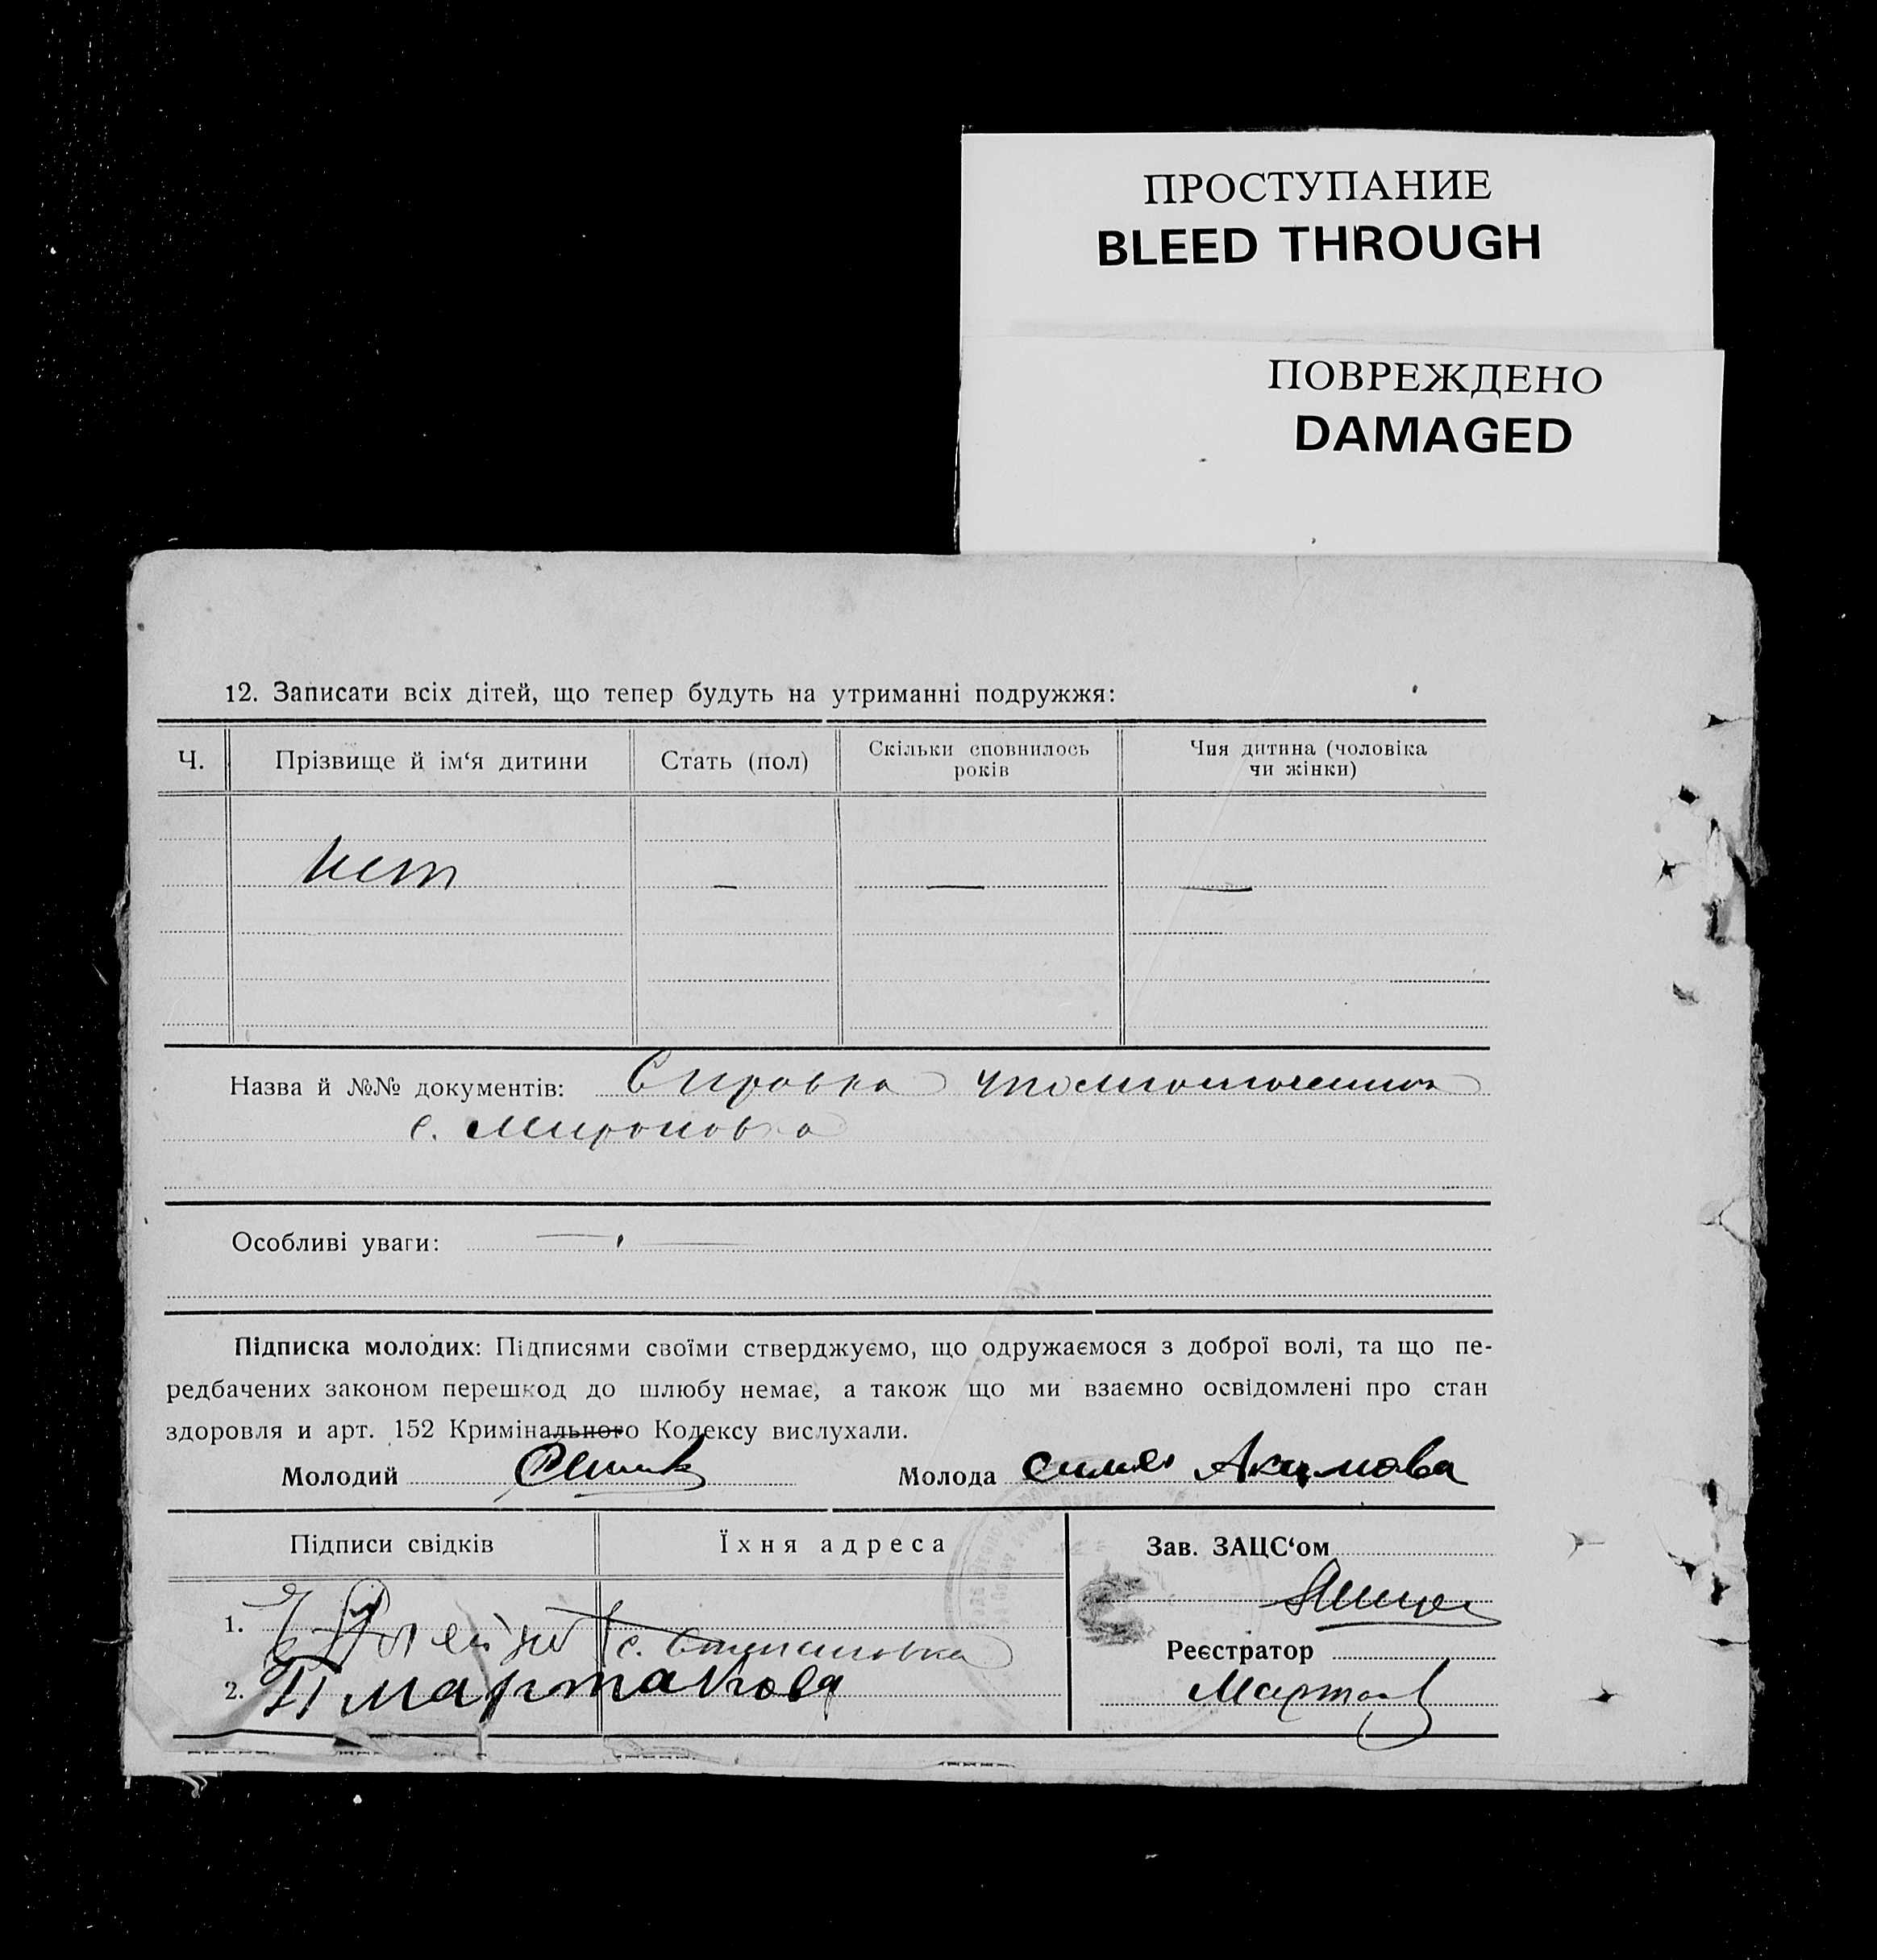 ПРОСТУПАНИЕ
BLEED THROUGH
ПОВРЕЖДЕНО
DAMAGED
12. Записати всіх дітей, що тепер будуть на утриманні подружжя:
Ч.
Прізвище й ім‘я дитини
Стать (пол)
Скільки сповнилось
років
Чия дитина (чоловіка
чи жінки)
нет — — —
Назва й №№ документів: Справка
с. Мироновка
Особливі уваги: —
Підписка молодих: Підписями своїми стверджуємо, що одружаємося з доброї волі, та що пе-
редбачених законом перешкод до шлюбу немає, а також що ми взаємно освідомлені про стан
здоровля и арт. 152 Кримінального Кодексу вислухали.
Молодий
Молода Акимова
Підписи свідків
Їхня адреса
Зав. ЗАЦС‘ом
1. с. Степановка
Реєстратор
2. П Мартакова